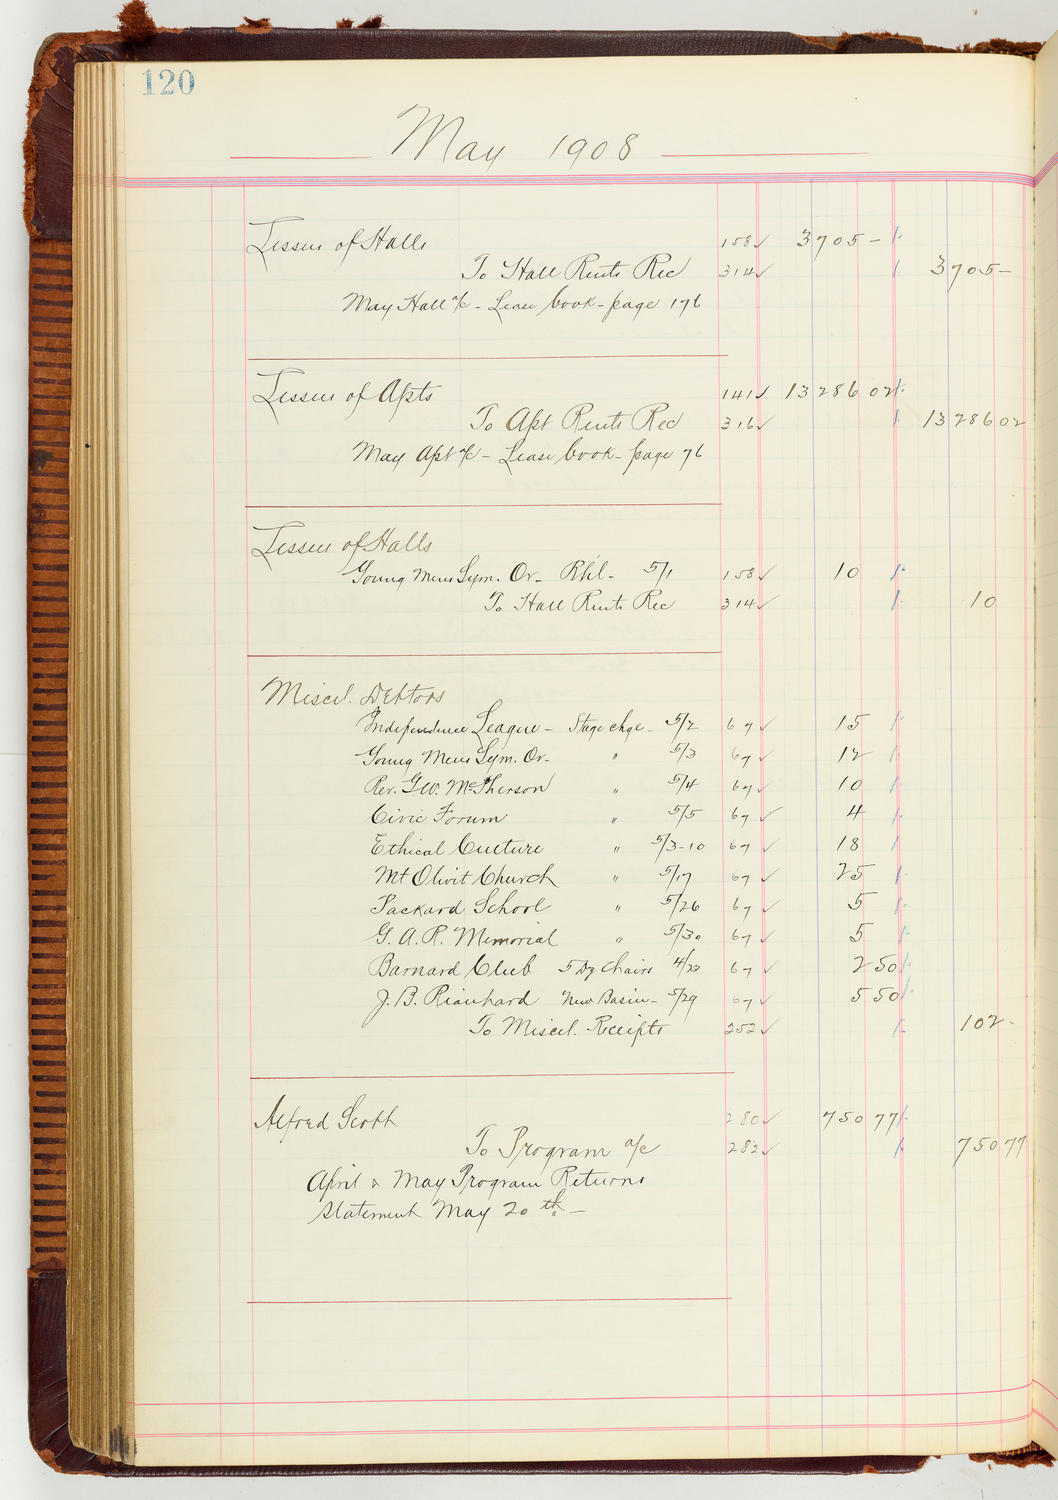 120
May 1908
Lessees of Halls 158 ✓ 3705 –
To Hall Rents Rec 314 ✓ 3705 –
May Hall a/c - Lease book - page 176
Lessees of Apts 141 ✓ 13286 02
To Apt Rents Rec 316 ✓ 13286 02
May Apt a/c - Lease book - page 76
Lessees of Halls
Young Mens Sym. Or. 5/1 158 ✓ 10
To Hall Rents Rec 314 ✓ 10
Miscel. Debtors
Independence League - Stage chge - 5/2 67 ✓ 15
Young Mens Sym. Or - " 5/3 67 ✓ 12
Rev. G.W. McPherson " 5/4 67 ✓ 10
Civic Forum " 5/5 67 ✓ 4
Ethical Culture " 5/3-10 67 ✓ 18
Mt Olivit Church " 5/17 67 ✓ 25
Packard School " 5/26 67 ✓ 5
G. A. R. Memorial " 5/30 67 ✓ 5
Barnard Club 5 Dz Chairs 67 ✓ 2 50
J. B. New Basin - 5/29 67 ✓ 5 50
To Miscel. Receipts 252 ✓ 102 -
Alfred Scott 280 ✓ 750 77
To Program a/c 282 ✓ 750 77
April & May Program Returns
Statement May 20th -